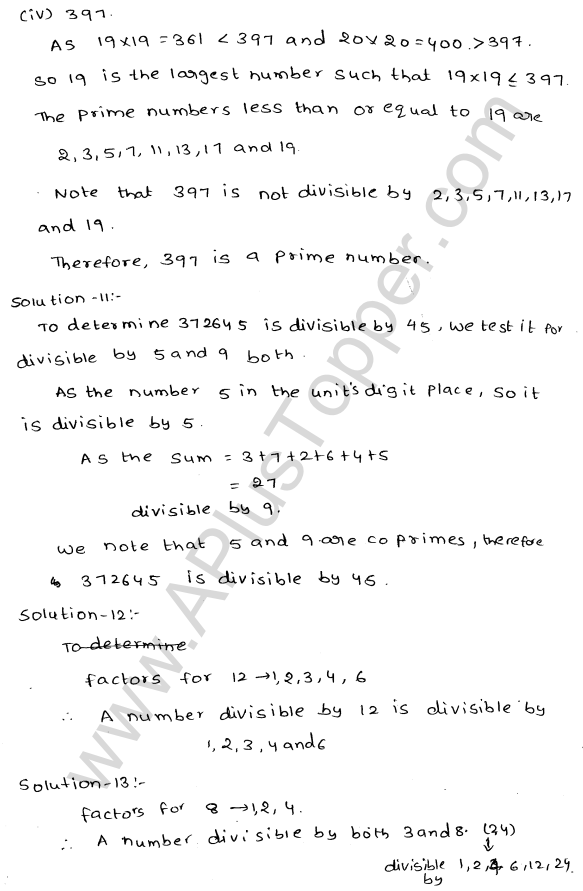 (iv) 397.
As 19×19 = 361 < 397 and 20×20=400 > 397.
So 19 is the largest number such that 19×19 ≤ 397.
The prime numbers less than or equal to 19 are
2,3,5,7,11,13,17 and 19.
Note that 397 is not divisible by 2,3,5,7,11,13,17
and 19.
Therefore, 397 is a prime number.
Solution -11:-
To determine 372645 is divisible by 45, we test it for
divisible by 5 and 9 both.
As the number 5 in the unit's digit place, so it
is divisible by 5.
As the sum = 3+7+2+6+4+5
= 27
divisible by 9.
We note that 5 and 9 are co primes, therefore
372645 is divisible by 45.
Solution-12:-
To determine
factors for 12 →1,2,3,4,6
∴ A number divisible by 12 is divisible by
1,2,3,4 and 6
Solution-13:-
factors for 8 →1,2,4.
∴ A number divisible by both 3 and 8. (24)
↓
divisible 1,2,4, 6,12,24.
by
www.APlusTopper.com